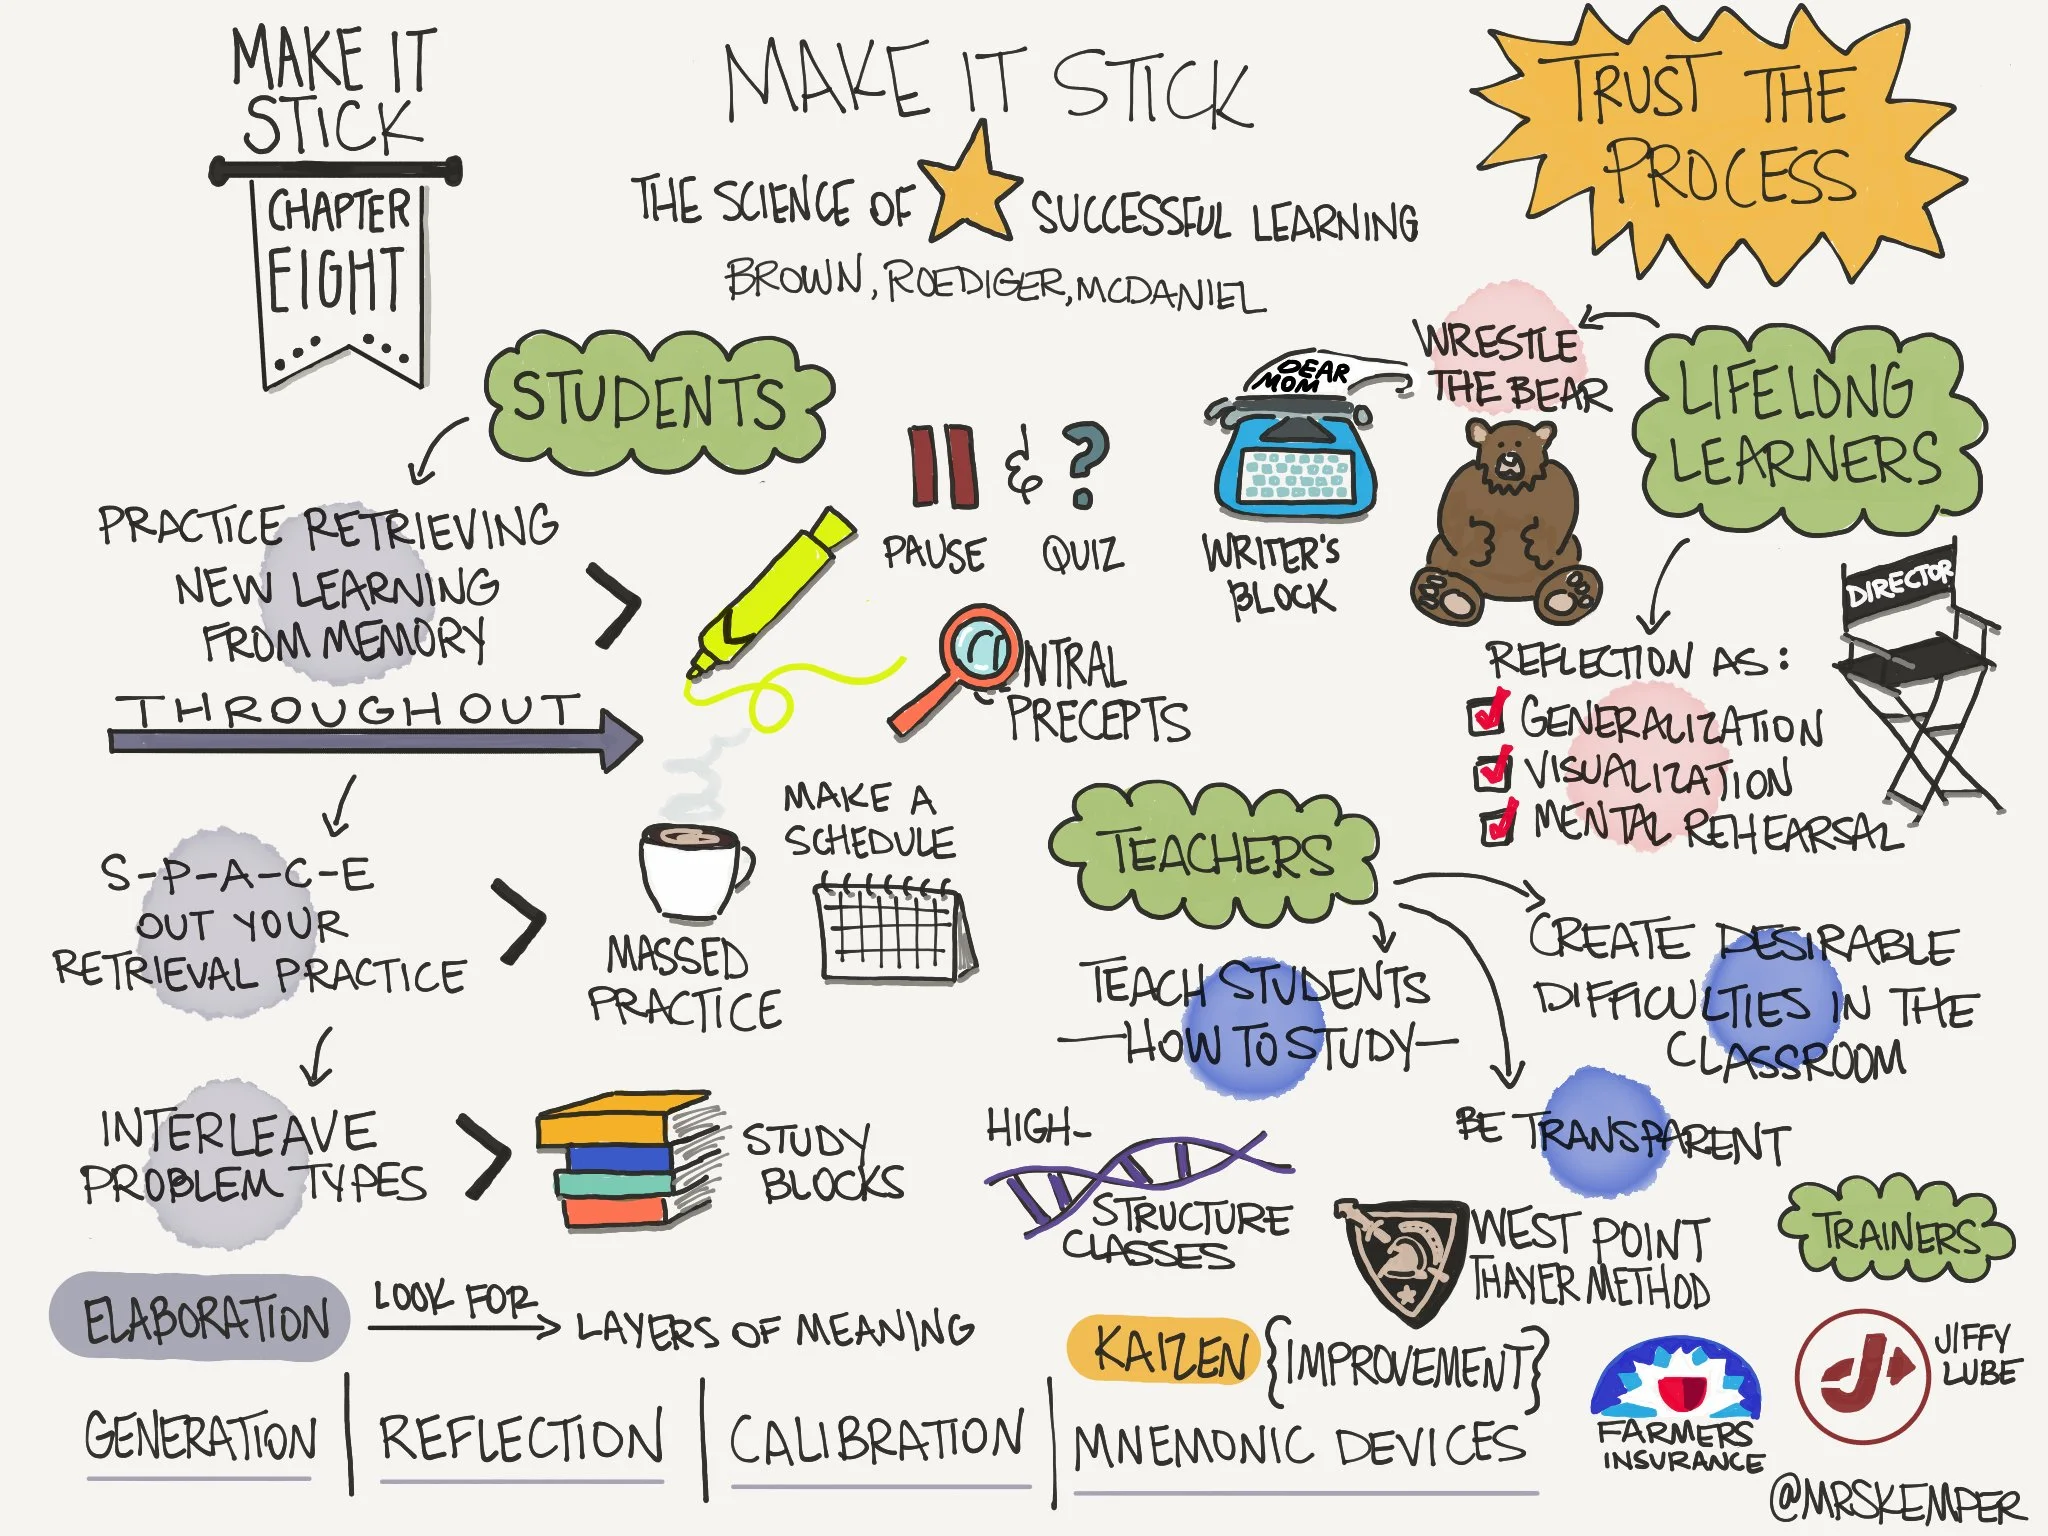 MAKE IT
STICK
CHAPTER
EIGHT
MAKE IT STICK
THE SCIENCE OF SUCCESSFUL LEARNING
BROWN, ROEDIGER, MCDANIEL
TRUST THE
PROCESS
STUDENTS
PRACTICE RETRIEVING
NEW LEARNING
FROM MEMORY
>
THROUGHOUT
PAUSE & ? QUIZ
CENTRAL
PRECEPTS
S-P-A-C-E
OUT YOUR
RETRIEVAL PRACTICE
>
MASSED
PRACTICE
MAKE A
SCHEDULE
INTERLEAVE
PROBLEM TYPES
>
STUDY
BLOCKS
ELABORATION
LOOK FOR
LAYERS OF MEANING
GENERATION
REFLECTION
CALIBRATION
MNEMONIC DEVICES
LIFELONG
LEARNERS
WRESTLE
THE BEAR
DEAR
MOM
WRITER'S
BLOCK
REFLECTION AS:
GENERALIZATION
VISUALIZATION
MENTAL REHEARSAL
DIRECTOR
TEACHERS
TEACH STUDENTS
—HOW TO STUDY—
CREATE DESIRABLE
DIFFICULTIES IN THE
CLASSROOM
BE TRANSPARENT
HIGH-
STRUCTURE
CLASSES
WEST POINT
THAYER METHOD
KAIZEN {IMPROVEMENT}
TRAINERS
FARMERS
INSURANCE
J
JIFFY
LUBE
@MRSKEMPER